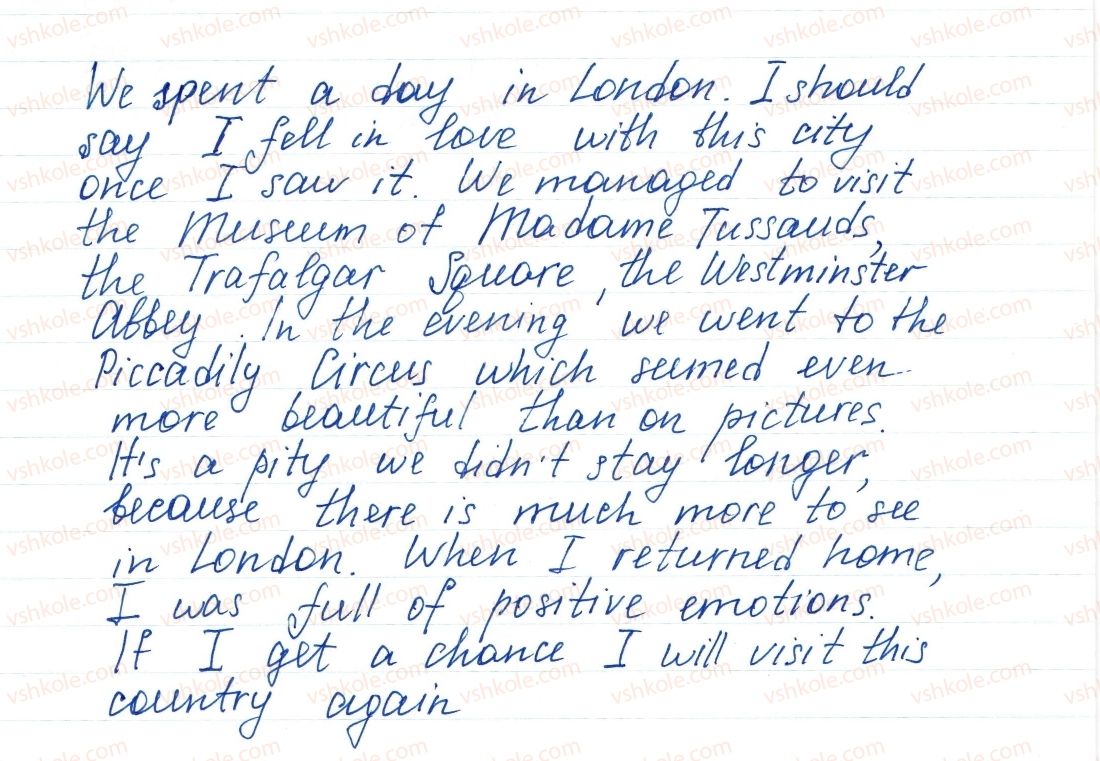 We spent a day in London. I should
say I fell in love with this city
once I saw it. We managed to visit
the Museum of Madame Tussauds,
the Trafalgar Square, the Westminster
Abbey. In the evening we went to the
Piccadily Circus which seemed even
more beautiful than on pictures.
It's a pity we didn't stay longer,
because there is much more to see
in London. When I returned home,
I was full of positive emotions.
If I get a chance I will visit this
country again
vshkole.com